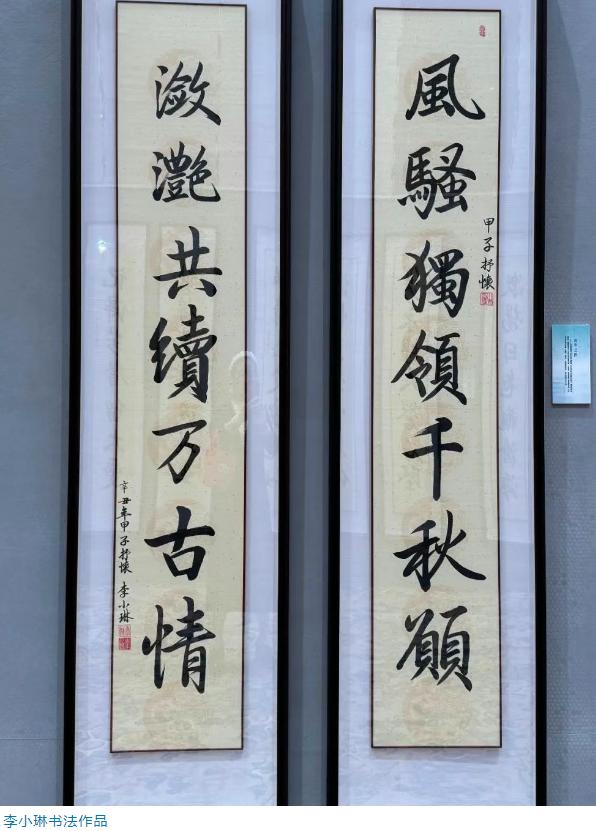 風騷獨領千秋願
甲子抒懷
瀲灧共續万古情
辛丑年甲子抒懷 李小琳
李小琳书法作品